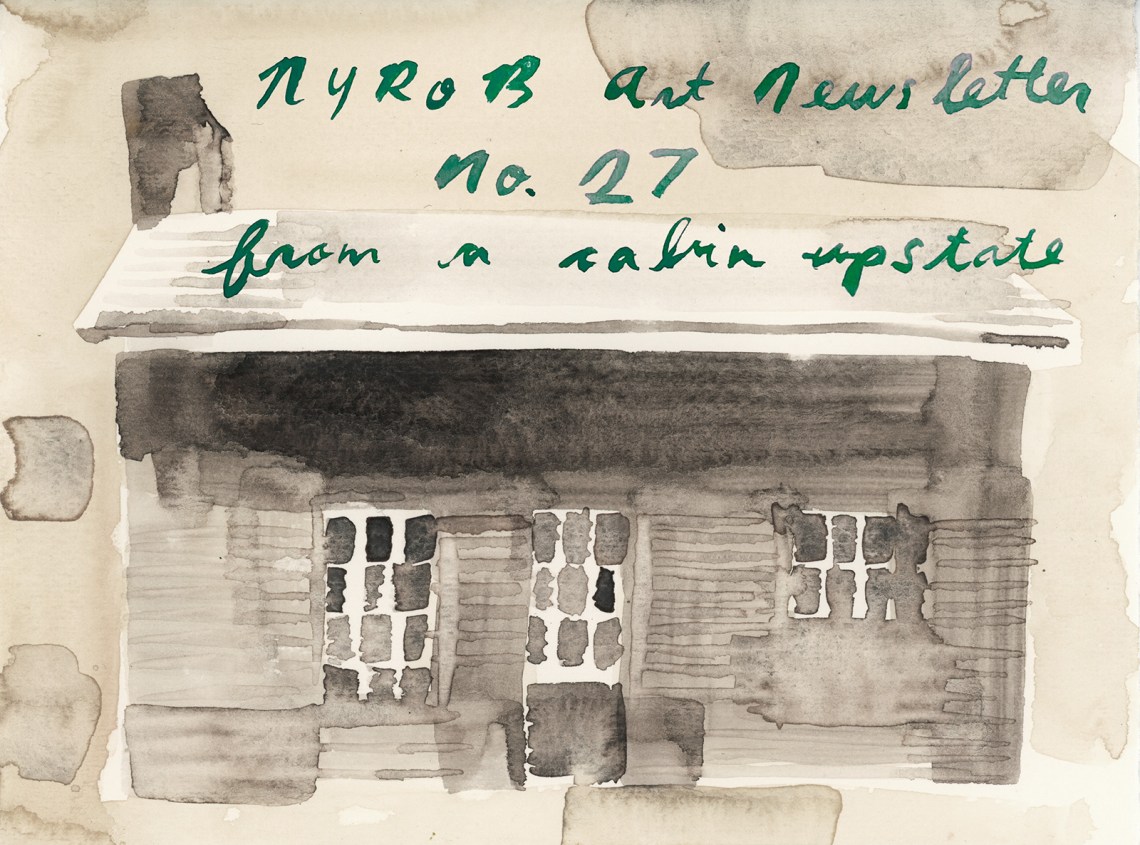 NYRoB Art Newsletter
No. 27
from a cabin upstate